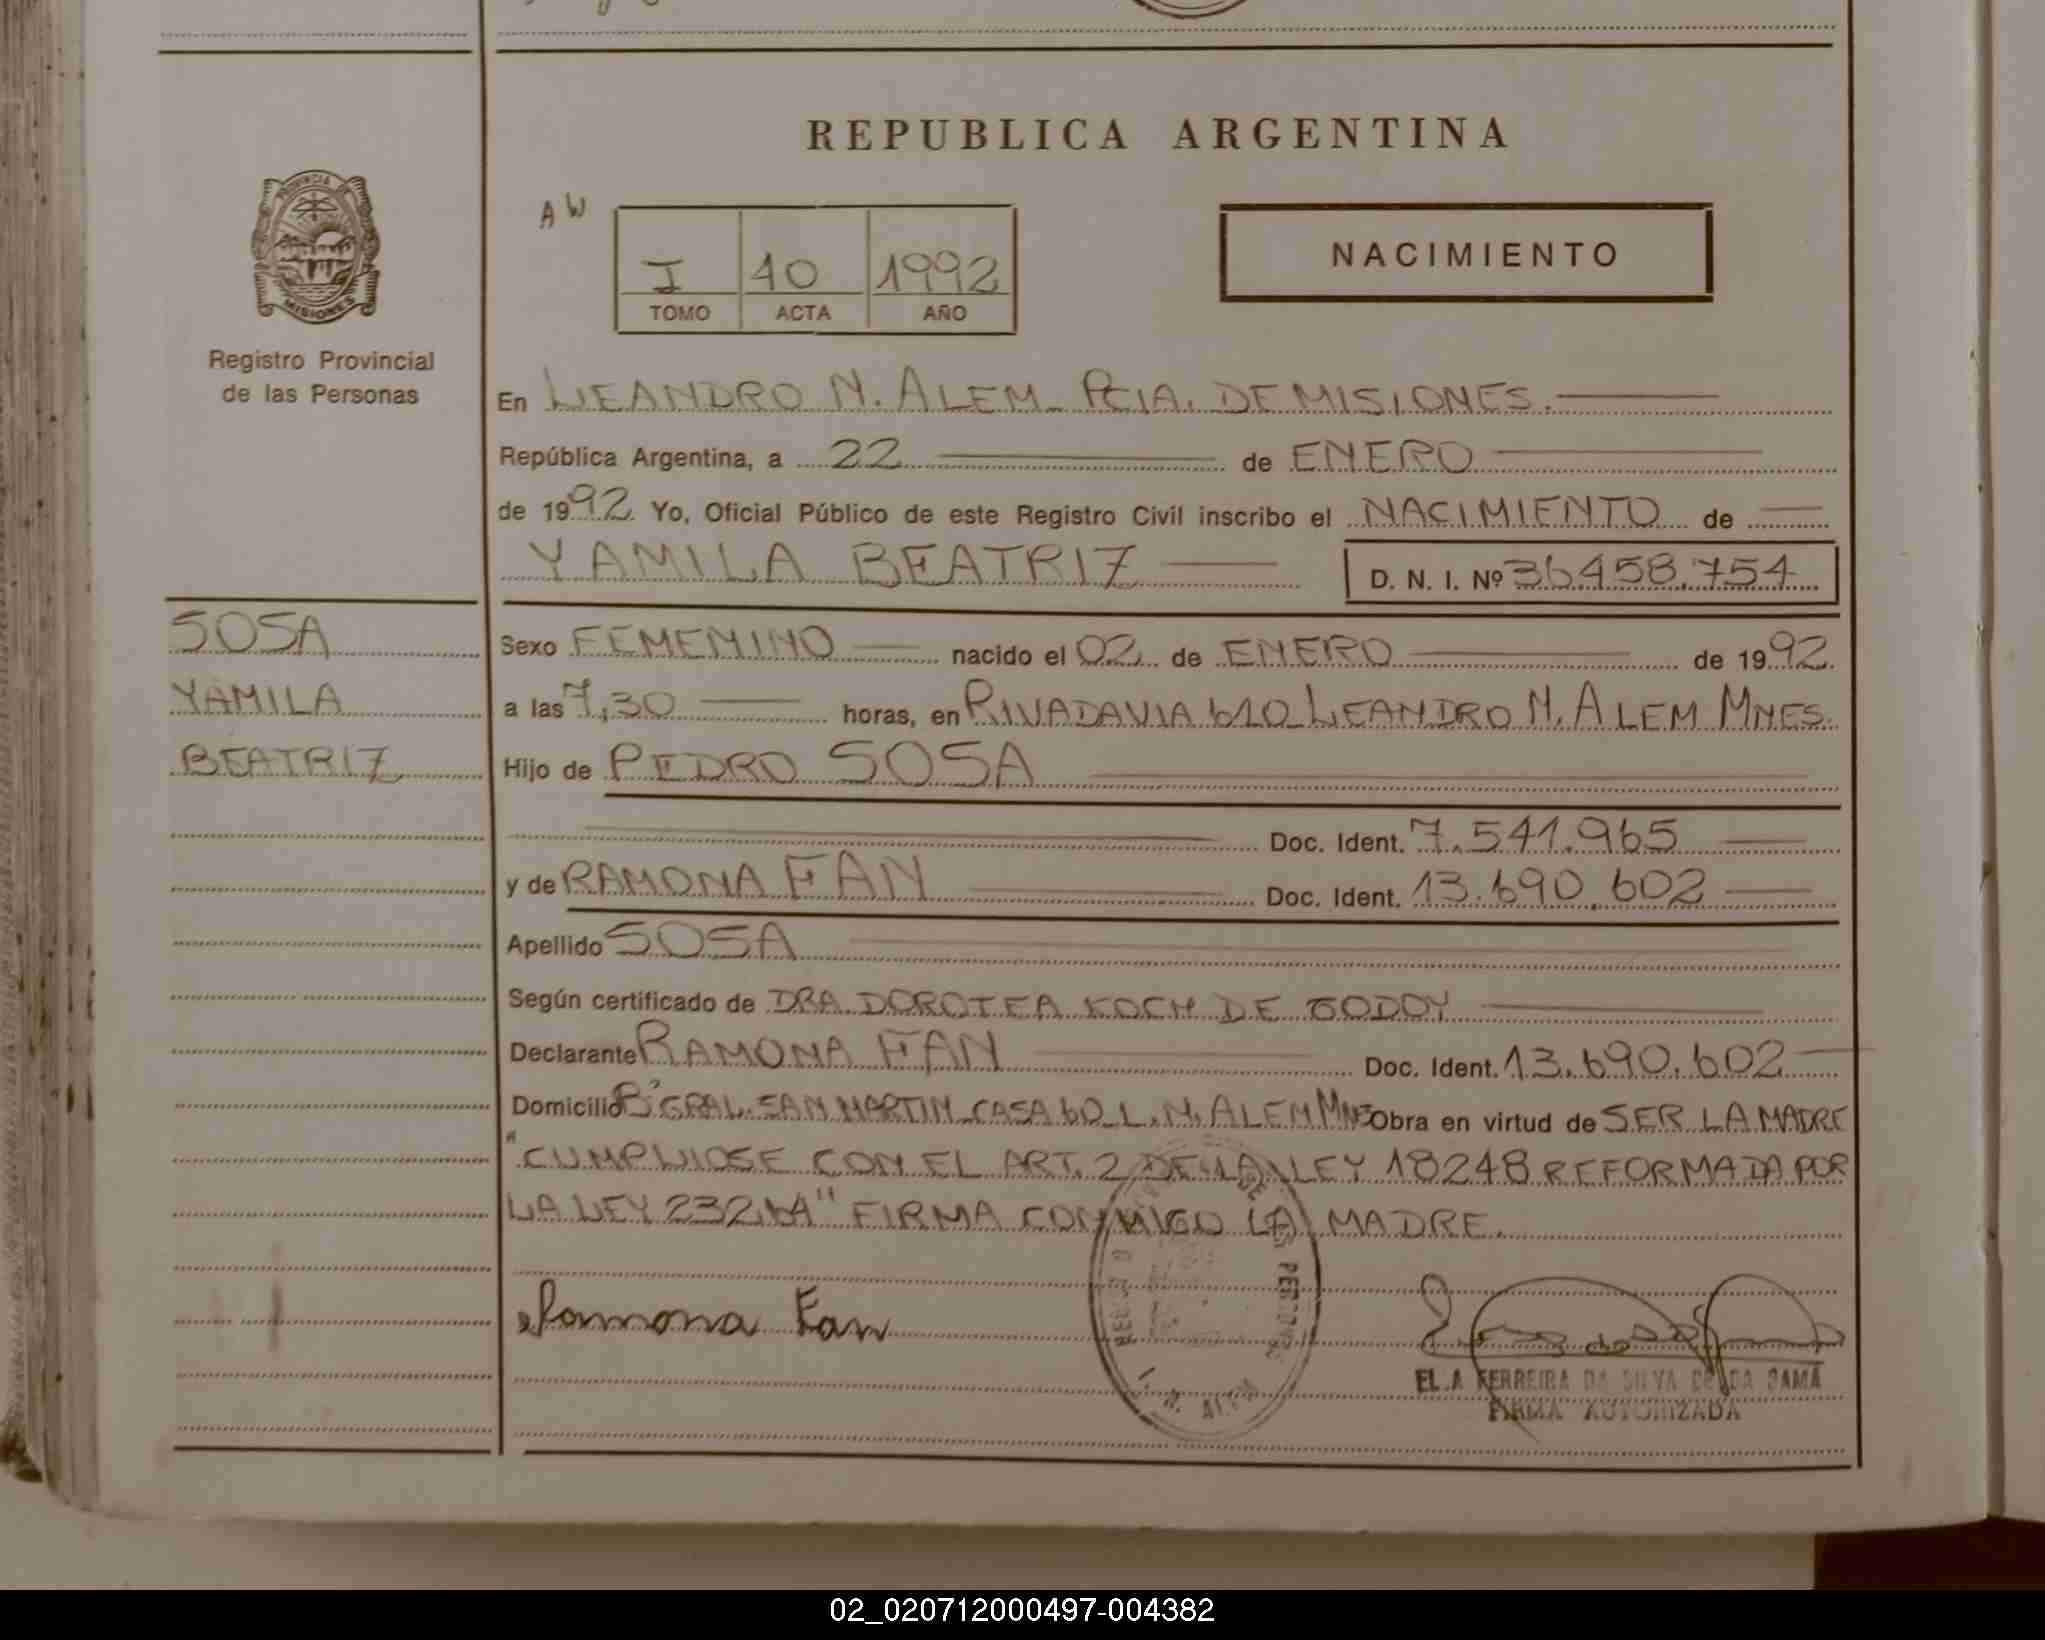 REPUBLICA ARGENTINA
PROVINCIA DE
MISIONES
Registro Provincial
de las Personas
AW
I 40 1992
TOMO ACTA AÑO
NACIMIENTO
En LEANDRO N. ALEM PCIA. DE MISIONES.
República Argentina, a 22 de ENERO
de 1992 Yo, Oficial Público de este Registro Civil inscribo el NACIMIENTO de
YAMILA BEATRIZ D. N. I. Nº 36458.754
SOSA
YAMILA
BEATRIZ
Sexo FEMENINO nacido el 02 de ENERO de 1992
a las 7,30 horas, en RIVADAVIA 610 LEANDRO N. ALEM MNES.
Hijo de PEDRO SOSA
Doc. Ident. 7.541.965
y de RAMONA FAN Doc. Ident. 13.690.602
Apellido SOSA
Según certificado de DRA. DOROTEA KOCH DE GODOY
Declarante RAMONA FAN Doc. Ident. 13.690.602
Domicilio Bº GRAL. SAN MARTIN CASA 60 L. N. ALEM MNES Obra en virtud de SER LA MADRE
"CUMPLIOSE CON EL ART. 2 DE LA LEY 18248 REFORMADA POR
LA LEY 23264" FIRMA CONMIGO LA MADRE.
Ramona Fan
L. N. ALEM
FERREIRA DA SILVA DE DA GAMA
FIRMA AUTORIZADA
02_020712000497-004382